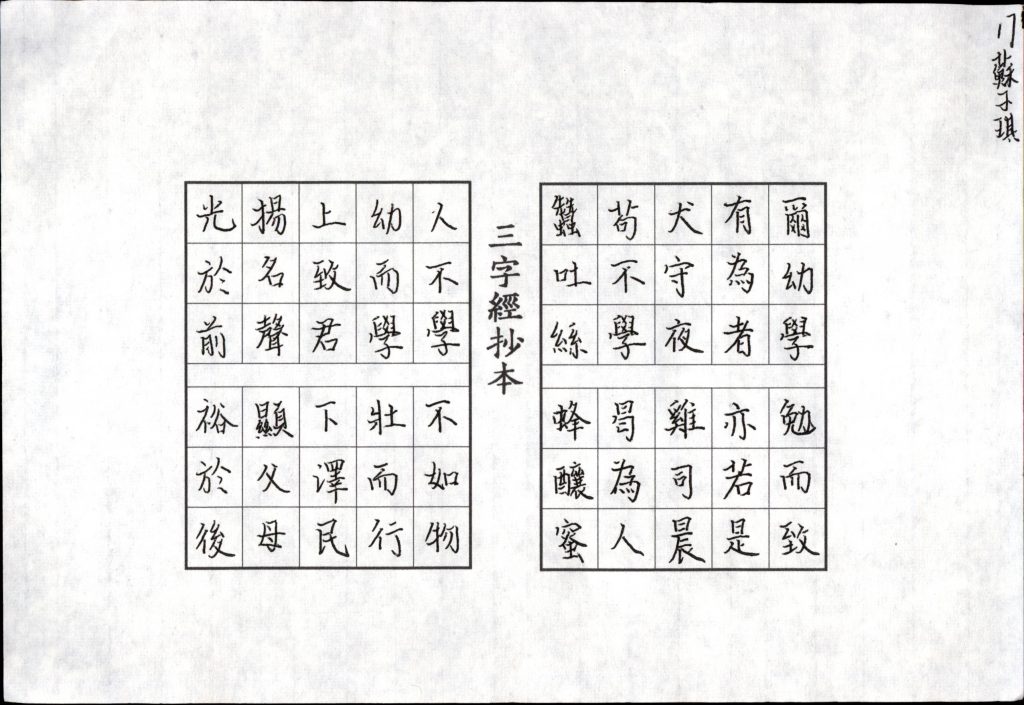 17 蘇子琪
爾幼學 勉而致
有為者 亦若是
犬守夜 雞司晨
苟不學 曷為人
蠶吐絲 蜂釀蜜
三字經抄本
人不學 不如物
幼而學 壯而行
上致君 下澤民
揚名聲 顯父母
光於前 裕於後